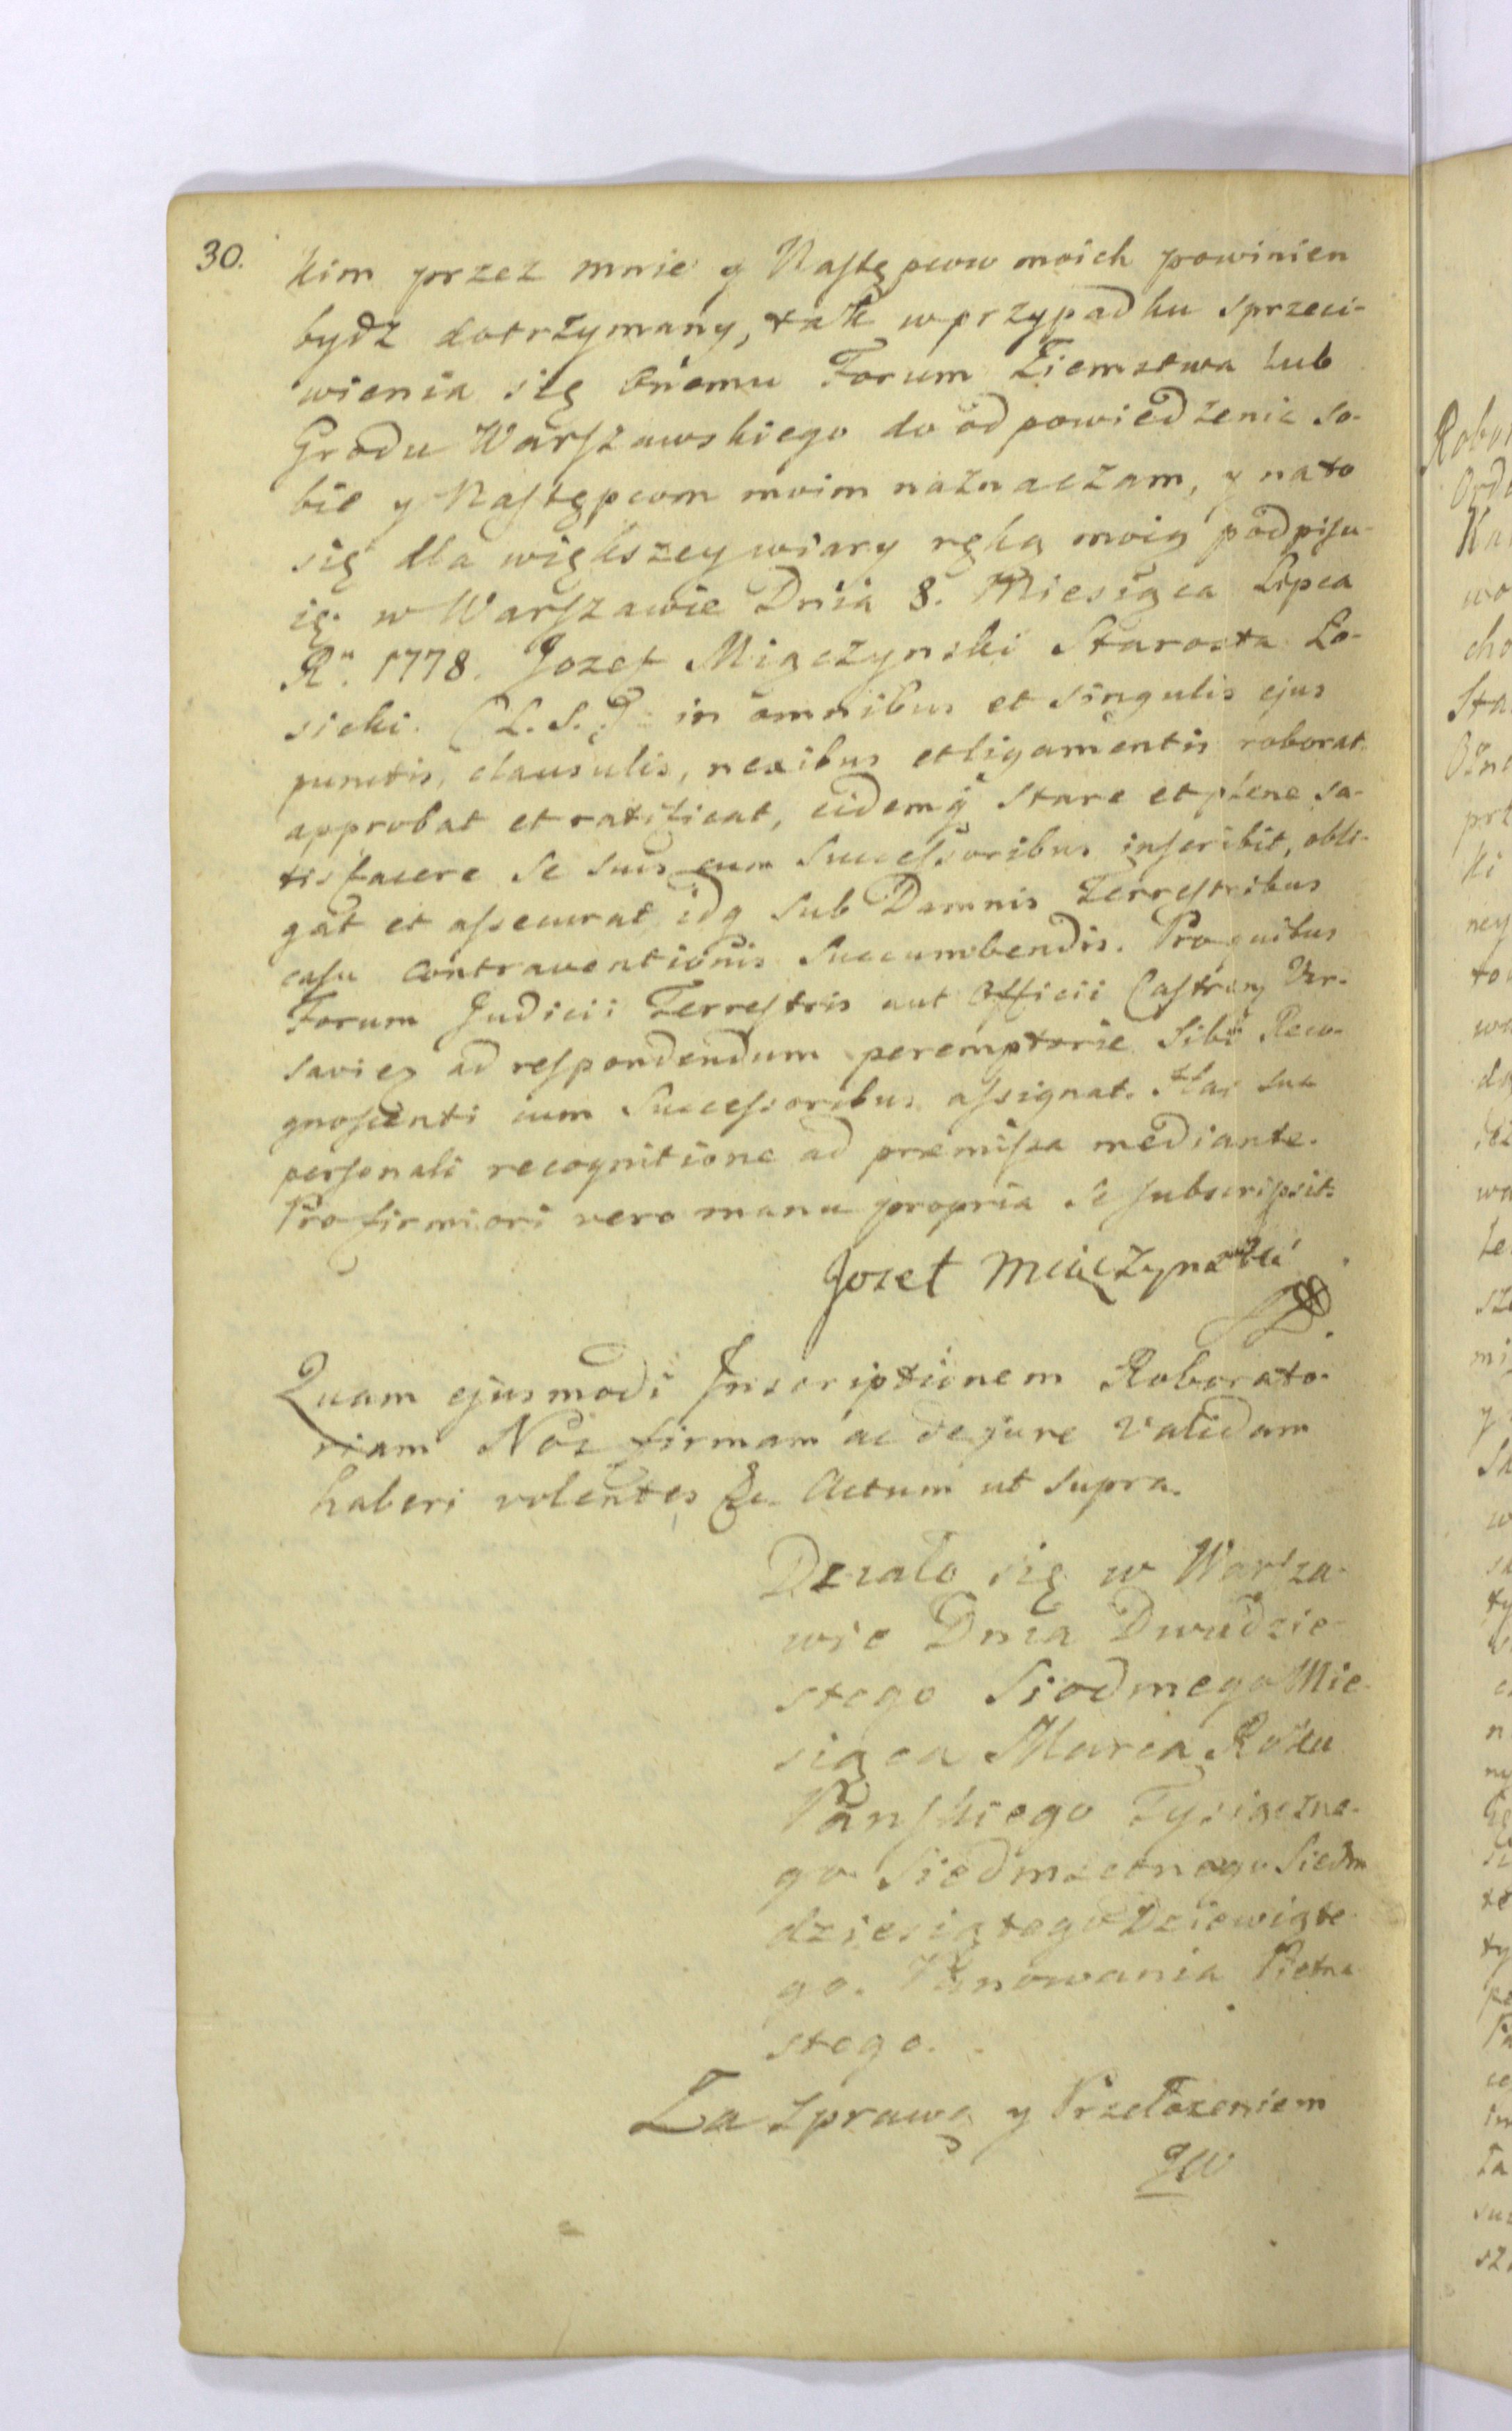 30.
kim przez mnie y Następcow moich powinien
bydź dotrzymany, tak w przypadku sprzeci-
wienia się onemu Forum Ziemstwa lub
Grodu Warszawskiego do odpowiedzenia so-
bie y Następcom moim naznaczam, y na to
się dla większey wiary ręką moią podpisu-
ię. w Warszawie Dnia 8. Miesiąca Lipca
Rᵘ. 1778. Jozef Miączynski Starosta Lo-
sicki. (L. S.) in omnibus et singulis ejus
punctis, clausulis, nexibus et ligamentis roborat
approbat et ratificat, eidemq̃ stare et plene sa-
tisfacere se suis cum Successoribus inscribit, obli-
gat et assecurat idq sub Damnis Terrestribus
casu contraventionis succumbendis. Pro quibus
Forum Judicii Terrestris aut Officii Castren. Var-
savien ad respondendum peremptorie sibi Reco-
gnoscenti cum Successoribus assignat. Hac sua
personali recognitione ad præmissa mediante.
Pro firmiori vero manu propria se subscripsit.
Jozef Miączynski
Quam ejusmodi Inscriptionem Roborato-
riam Nos firmam ac de jure validam
haberi volentes &c. Actum ut supra.
Działo się w Warsza-
wie Dnia Dwudzie-
stego Siodmego Mie-
siąca Marca Roku
Panskiego Tysiączne-
go Siedmsetnego Siedm
dziesiątego Dziewiąte-
go. Panowania Pietna-
stego.
Za sprawą y Przełozeniem
JW